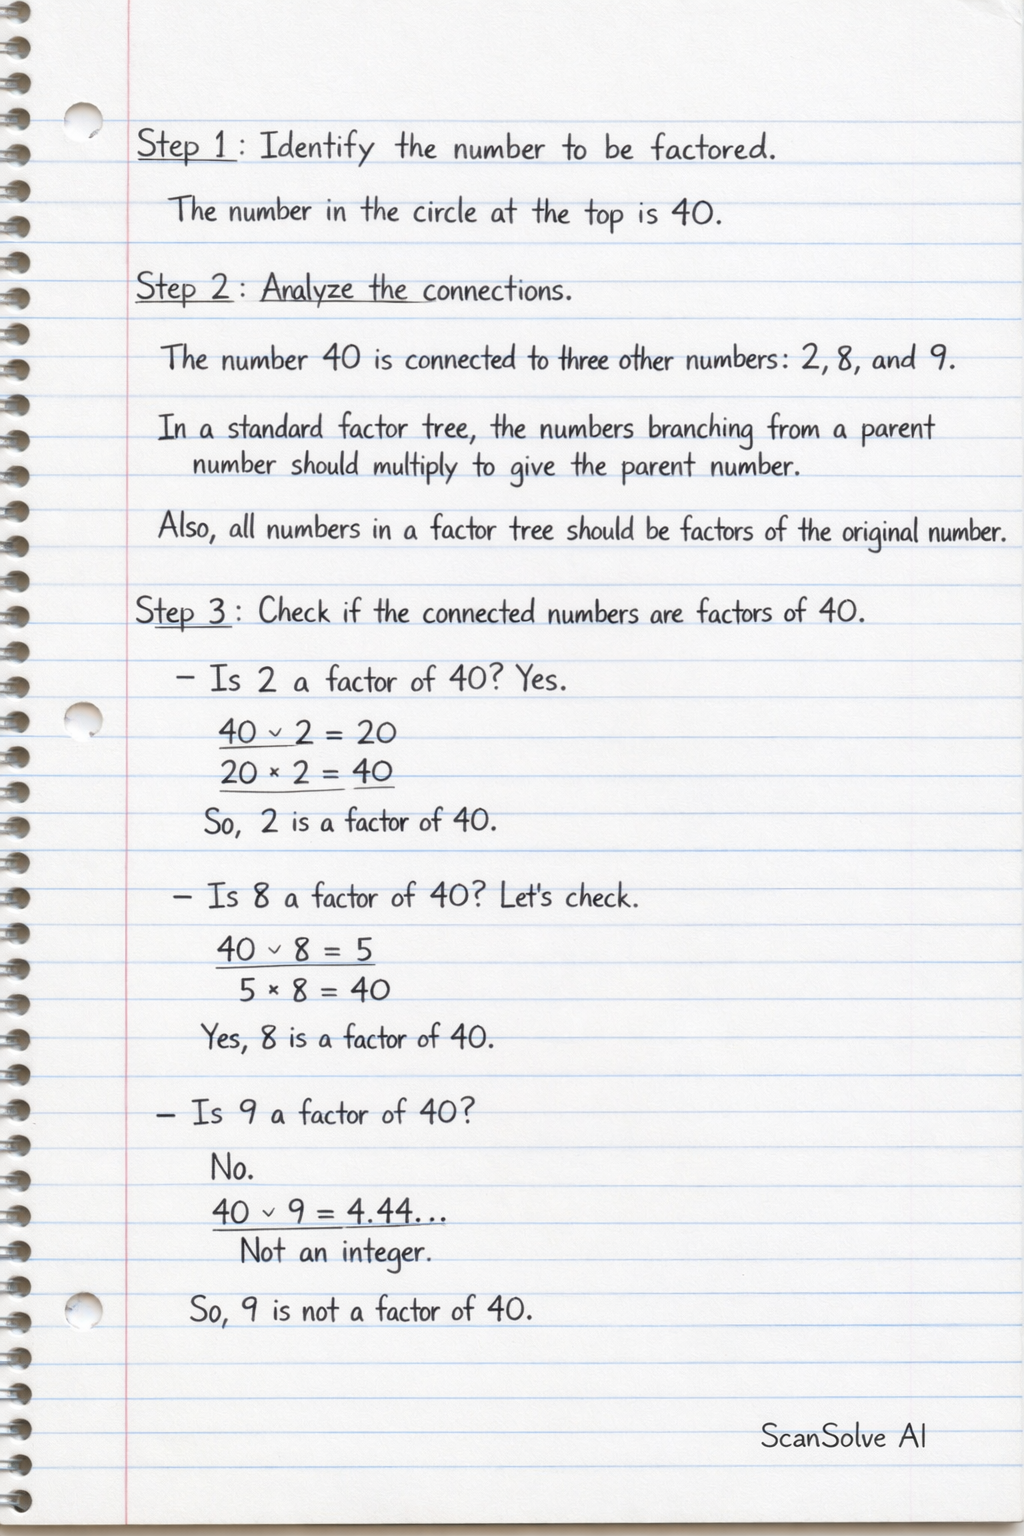 Step 1: Identify the number to be factored.
The number in the circle at the top is 40.
Step 2: Analyze the connections.
The number 40 is connected to three other numbers: 2, 8, and 9.
In a standard factor tree, the numbers branching from a parent
number should multiply to give the parent number.
Also, all numbers in a factor tree should be factors of the original number.
Step 3: Check if the connected numbers are factors of 40.
– Is 2 a factor of 40? Yes.
40 ˅ 2 = 20
20 × 2 = 40
So, 2 is a factor of 40.
– Is 8 a factor of 40? Let's check.
40 ˅ 8 = 5
5 × 8 = 40
Yes, 8 is a factor of 40.
– Is 9 a factor of 40?
No.
40 ˅ 9 = 4.44...
Not an integer.
So, 9 is not a factor of 40.
ScanSolve AI